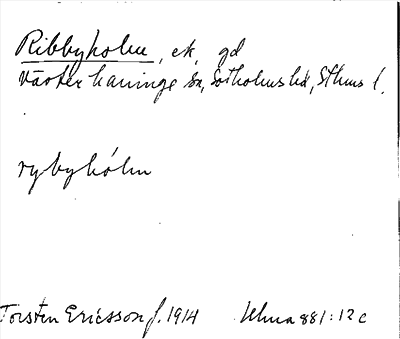 Ribbyholm, ek, gd
Västerhaninge sn, Sotholms hd, Sthms l.
rybyhólm
Torsten Ericsson f. 1914 Ulma 881:12c